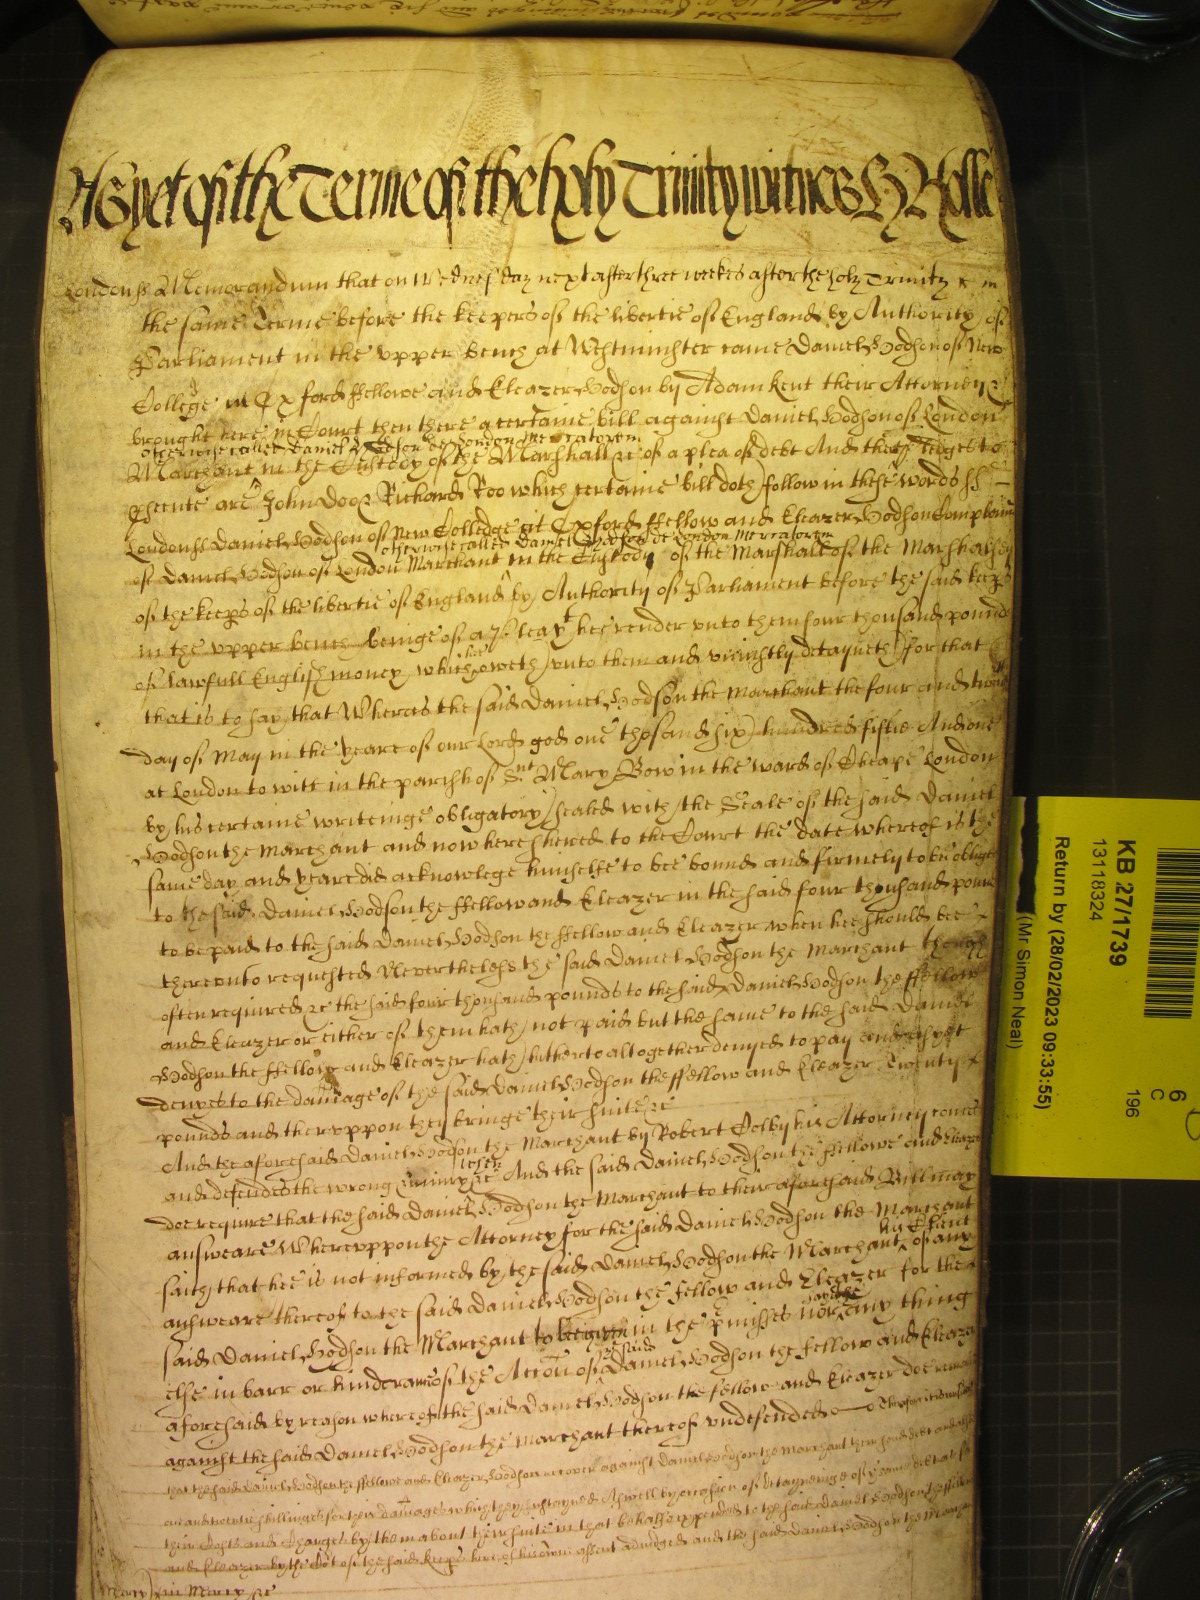 As yet of the Terme of the holy Trinity witnes H Rolle
London ss Memorandum that on Wednesday next after three weekes after the holy Trinity in
the same Terme before the keepers of the libertie of England by Authority of
Parliament in the vpper bench at Westminster came Daniel Hodson of New
Colledge in Oxford ffellowe and Eleazer Hodson by Adam Kent their Attorney &
brought here in Court then there a certaine bill against Daniel Hodson of London
otherwise called Daniel Hodson de London Mercatorem
Marchant in the Custody of the Marshall &c of a plea of debt And their pledges to
psecute are John Doo & Richard Roo which certaine bill doth follow in these words ss
London ss Daniel Hodson of New Colledge at Oxford ffellow and Eleazer Hodson Complaine
otherwise called Daniel Hodson de London Mercatorem
of Daniel Hodson of London Marchant in the Custody of the Marshall of the Marshalsey
of the keeps of the libertie of England by Authority of Parliament before the said keeps
in the vpper bench beinge of a plea that hee render vnto them four thousand pounds
of lawfull English money which hee oweth vnto them and vniustly detayneth for that
that is to say that Wheras the said Daniel Hodson the Marchant the four and twenty
day of May in the yeare of our Lord god one thosand six hundred fiftie And one
at London to witt in the parish of Snt Mary Bow in the ward of Cheape London
by his certaine writeinge obligatory sealed with the Seale of the said Daniel
Hodson the Marchant and now here shewed to the Court the date whereof is the
same day and yeare did acknowlege himselfe to bee bound and firmely to be obliged
to the said Daniel Hodson the ffellow and Eleazer in the said four thousand pound
to be paid to the said Daniel Hodson the ffellow and Eleazer when hee should bee
therevnto requested Neverthelesse the said Daniel Hodson the Marchant though
often required &c the said four thousand pounds to the said Daniel Hodson the ffellow
and Eleazer or either of them hath not paid but the same to the said Daniel
Hodson the ffellow and Eleazer hath hitherto altogether denyed to pay and as yet
denyes to the damage of the said Daniel Hodson the ffellow and Eleazer Twenty
pounds and therevppon they bringe their suite &c
And the aforesaid Daniel Hodson the Marchant by Robert Colby his Attorney comes
and defendes the wrong iniury when &c And the said Daniel Hodson the ffellowe and Eleazer
doe require that the said Daniel Hodson the Marchant to their aforesaid Bill may
answeare Wherevppon the Attorney for the said Daniel Hodson the Marchant
saith that hee is not informed by the said Daniel Hodson the Marchant his Client of any
answeare thereof to the said Daniel Hodson the fellow and Eleazer for the
said Daniel Hodson the Marchant to bee given in the pmisses nor any thing
else in barr or hinderance of the Accon of the said Daniel Hodson the fellow and Eleazer
aforesaid by reason whereof the said Daniel Hodson the fellow and Eleazer doe remaine
against the said Daniel Hodson the Marchant thereof vndefended Therefore it is considered
that the said Daniel Hodson the ffellowe and Eleazer Hodson recover against Daniel Hodson the Marchant their said debt and
one and twenty shillinges for their damages which they sustayned Aswell by occasion of detayneinge of the same debt as for
their Costs and Charges by them about their suite in that behalfe expended to the said Daniel Hodson the ffellow
and Eleazer by the Cot of the said keeps here of his owne assent adiudged and the said Daniel Hodson the Marchant
Mercy in Mercy &c
KB 27/1739
13118324
Return by (28/02/2023 09:33:55)
(Mr Simon Neal)
6
C
196